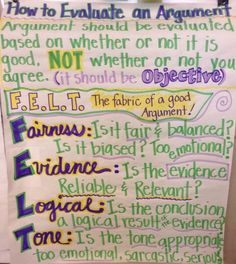 How to Evaluate an Argument
Argument should be evaluated
based on whether or not it is
good, NOT whether or not you
agree. (it should be Objective)
F.E.L.T. The fabric of a good
Argument!
Fairness: Is it fair & balanced?
Is it biased? Too emotional?
Evidence: Is the evidence
Reliable & Relevant?
Logical: Is the conclusion
a logical result of evidence?
Tone: Is the tone appropriate
too emotional, sarcastic, serious